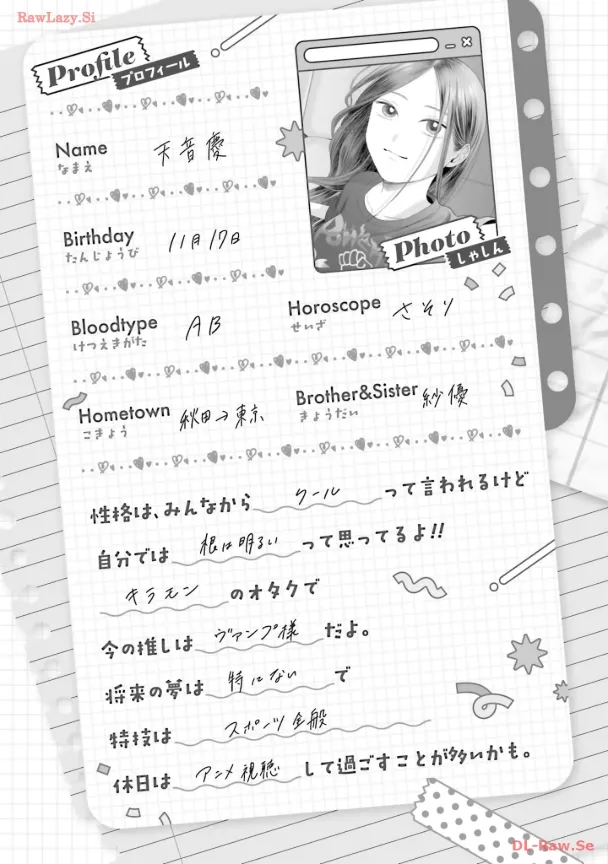 RawLazy.Si
Profile
プロフィール
Name 天音慶
なまえ
Birthday 11月17日
たんじょうび
Photo
しゃしん
Bloodtype AB
けつえきがた
Horoscope さそり
せいざ
Hometown 秋田→東京
こきょう
Brother&Sister 紗優
きょうだい
性格は、みんなからクールって言われるけど
自分では根は明るいって思ってるよ!!
キラモンのオタクで
今の推しはヴァンプ様だよ。
将来の夢は特にないで
特技はスポーツ全般
休日はアニメ視聴して過ごすことが多いかも。
DL-Raw.Se